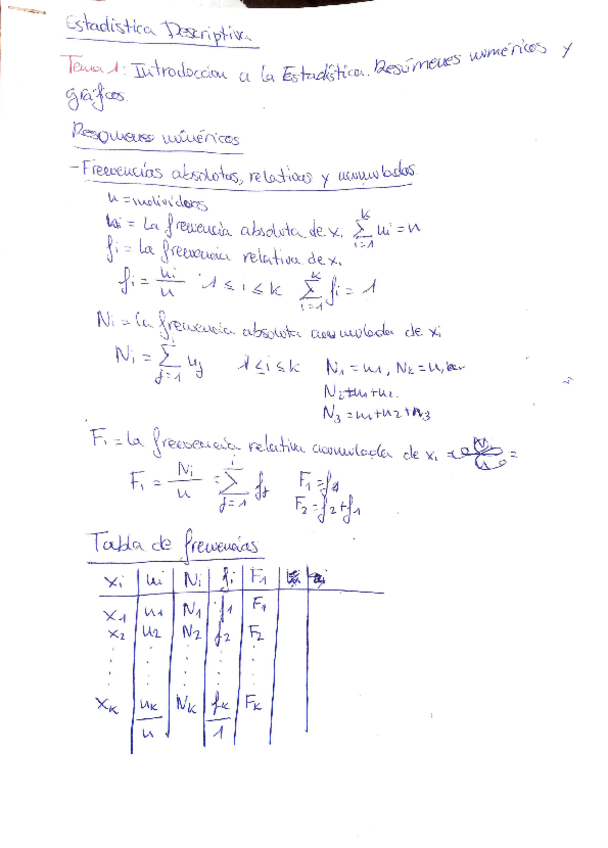 Estadística Descriptiva
Tema 1: Introduccion a la Estadística. Resúmenes numéricos y
gráficos.
Resumenes numéricos
- Frecuencias absolutas, relativas y acumuladas.
n = individuos
ni = La frecuencia absoluta de xi ∑_{i=1}^{k} ni = n
fi = La frecuencia relativa de xi
fi = ni/n 1 ≤ i ≤ k ∑_{i=1}^{k} fi = 1
Ni = la frecuencia absoluta acumulada de xi
Ni = ∑_{j=1}^{i} nj 1 ≤ i ≤ k N1 = n1, Nk = n,
N2 = n1 + n2.
N3 = n1 + n2 + n3
Fi = la frecuencia relativa acumulada de xi =
Fi = Ni/n = ∑_{j=1}^{i} fj F1 = f1
F2 = f2 + f1
Tabla de frecuencias
xi | ni | Ni | fi | F1
x1 | n1 | N1 | f1 | F1
x2 | n2 | N2 | f2 | F2
xk | nk | Nk | fk | Fk
n 1